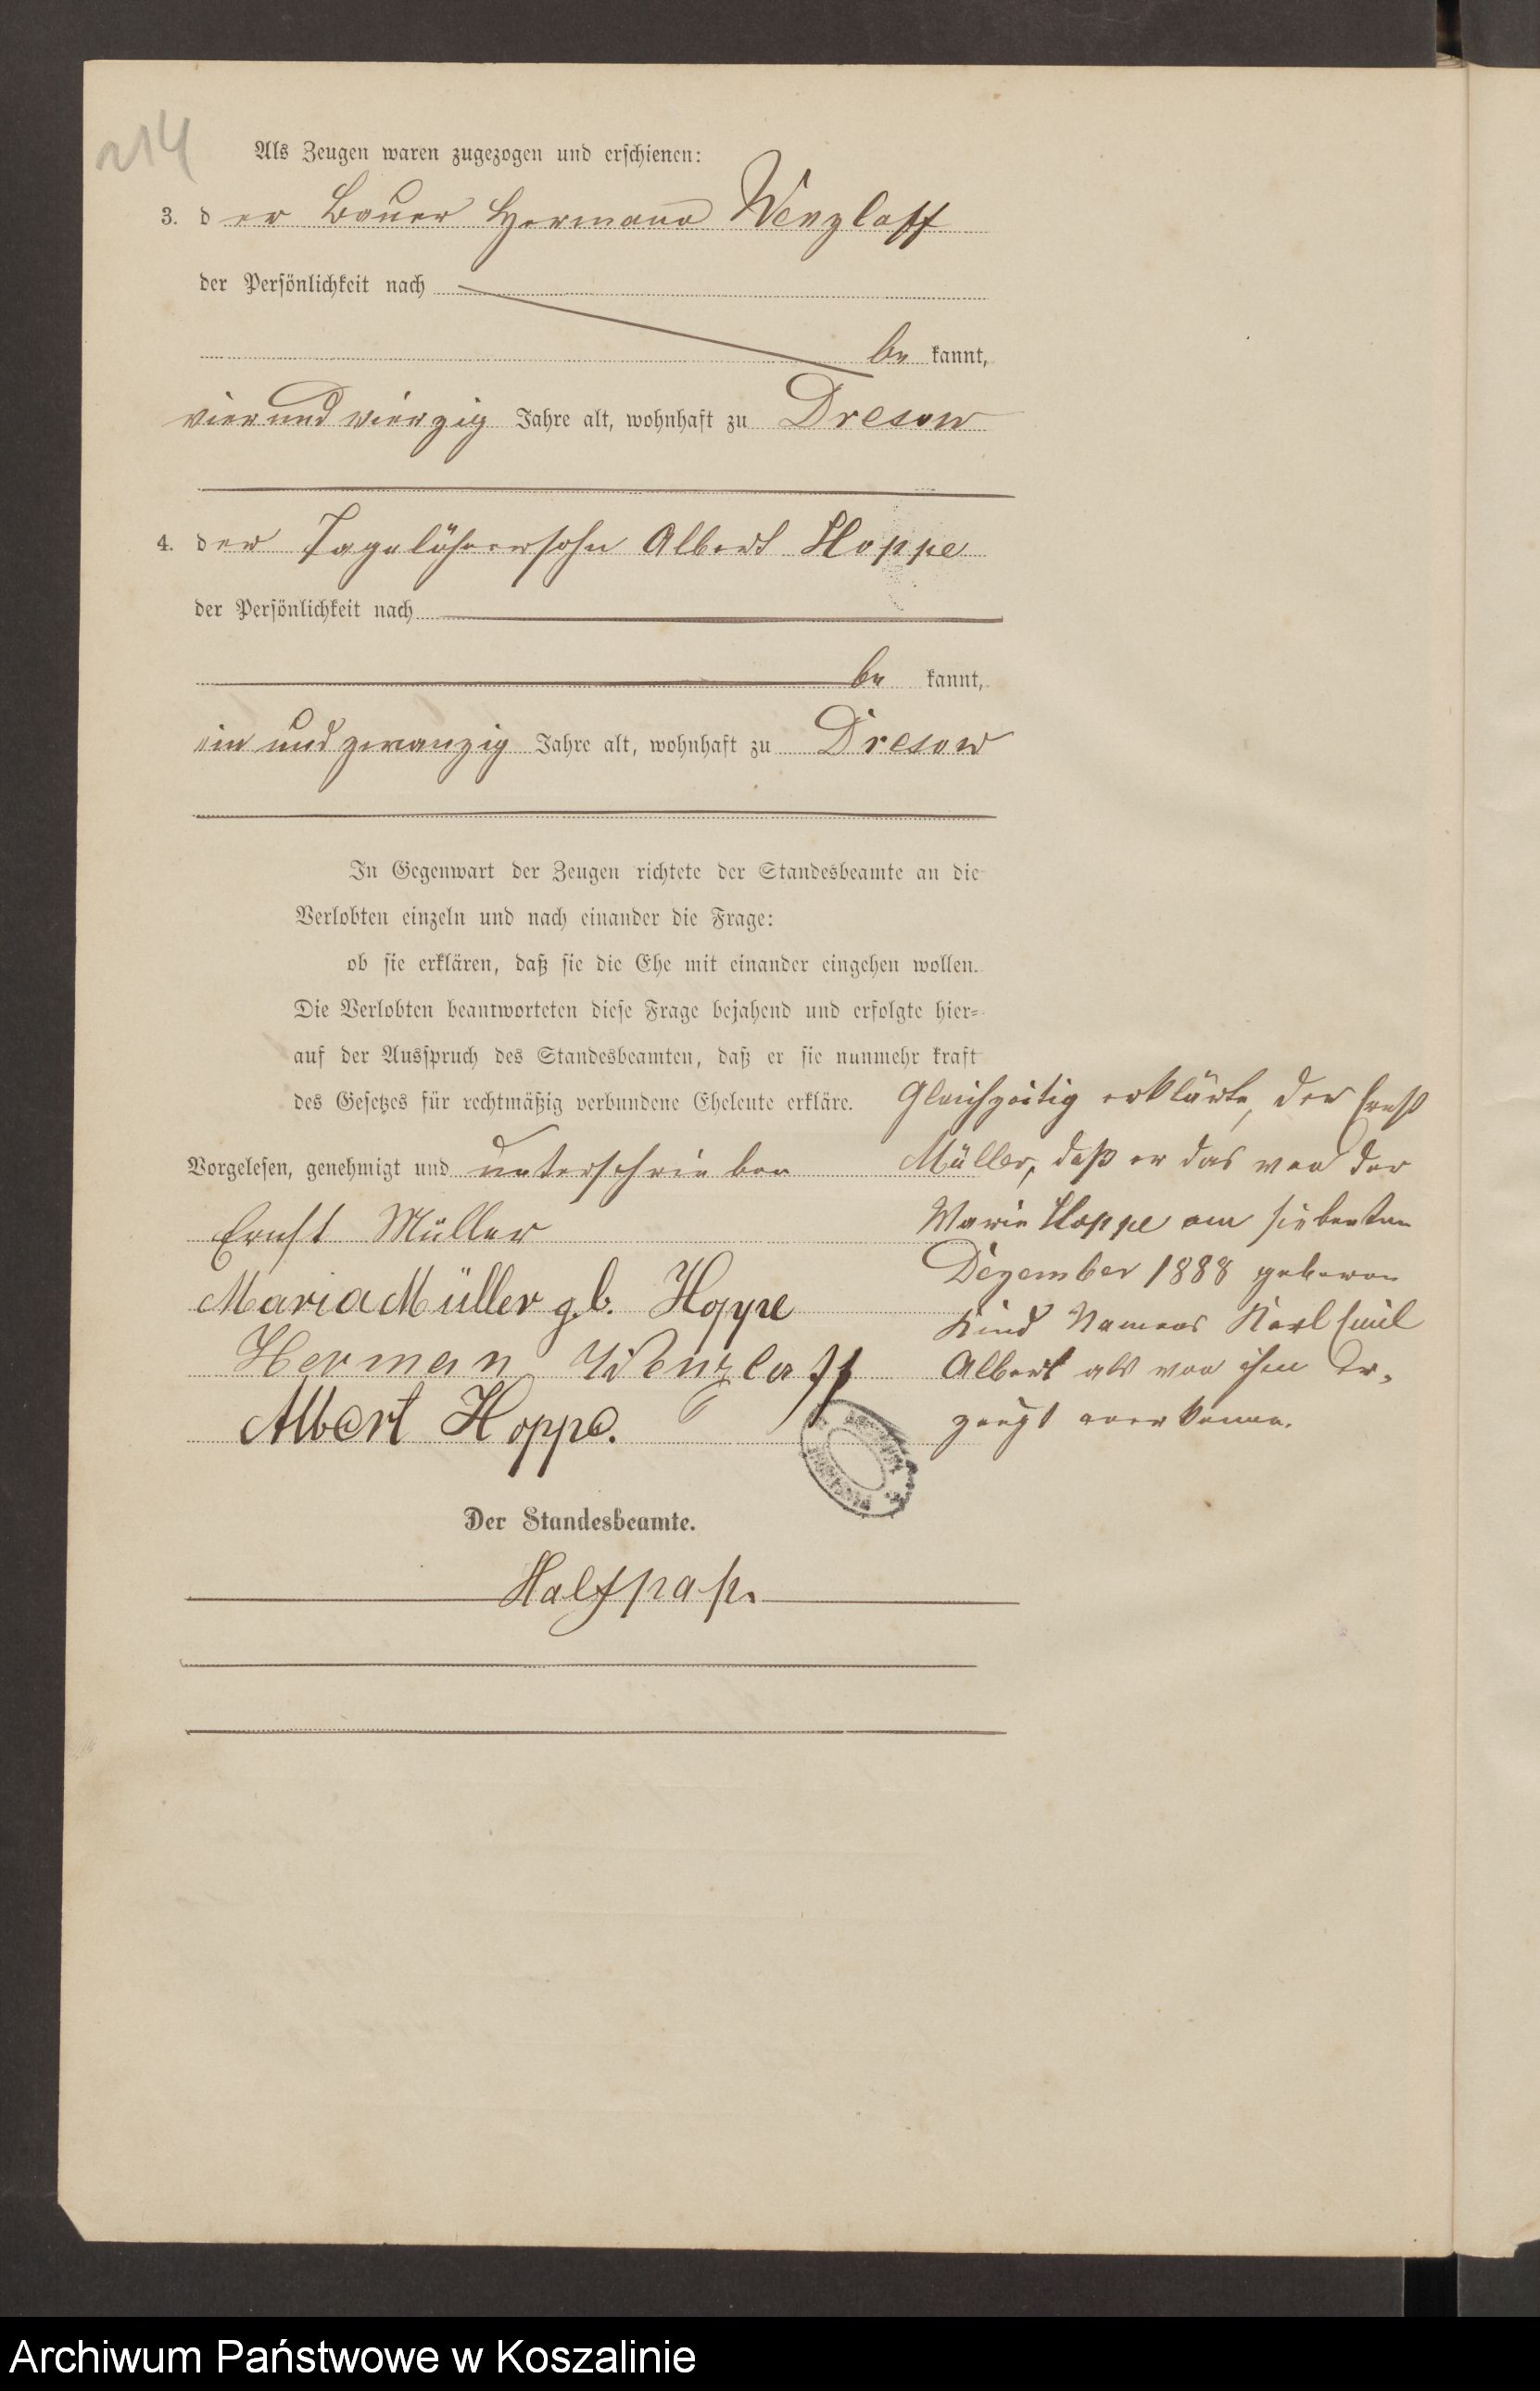 214
Als Zeugen waren zugezogen und erschienen:
3. der Bauer Hermann Wenzlaff
der Persönlichkeit nach
be kannt,
vierundvierzig Jahre alt, wohnhaft zu Dresow
4. der Tagelöhnersohn Albert Hoppe
der Persönlichkeit nach
be kannt,
ein und zwanzig Jahre alt, wohnhaft zu Dresow
In Gegenwart der Zeugen richtete der Standesbeamte an die
Verlobten einzeln und nach einander die Frage:
ob sie erklären, daß sie die Ehe mit einander eingehen wollen.
Die Verlobten beantworteten diese Frage bejahend und erfolgte hier-
auf der Ausspruch des Standesbeamten, daß er sie nunmehr kraft
des Gesetzes für rechtmäßig verbundene Eheleute erkläre.
Vorgelesen, genehmigt und unterschrieben
Ernst Müller
Maria Müller gb. Hoppe
Herman Wenzlaff
Albert Hoppe.
Gleichzeitig erklärte, der Ernst
Müller, daß er das von der
Marie Hoppe am siebenten
Dezember 1888 geboren
Kind Namens Karl Emil
Albert als von ihm er-
zeugt anerkenne.
Der Standesbeamte.
Halfpap.
Archiwum Państwowe w Koszalinie